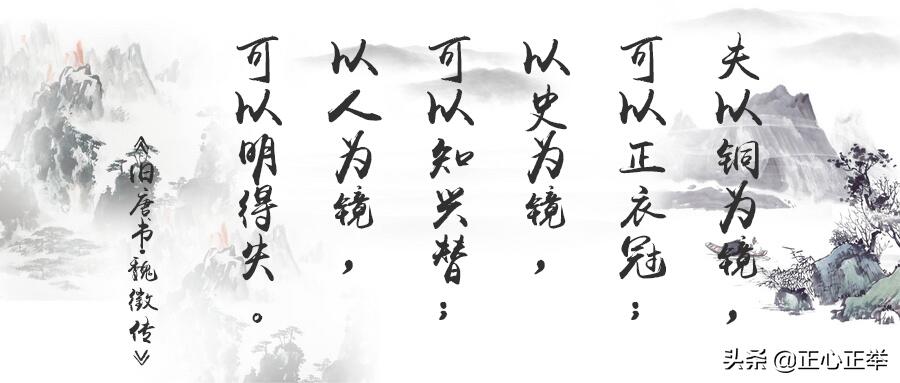 夫以铜为镜，
可以正衣冠；
以史为镜，
可以知兴替；
以人为镜，
可以明得失。
《旧唐书·魏徵传》
头条 @正心正举